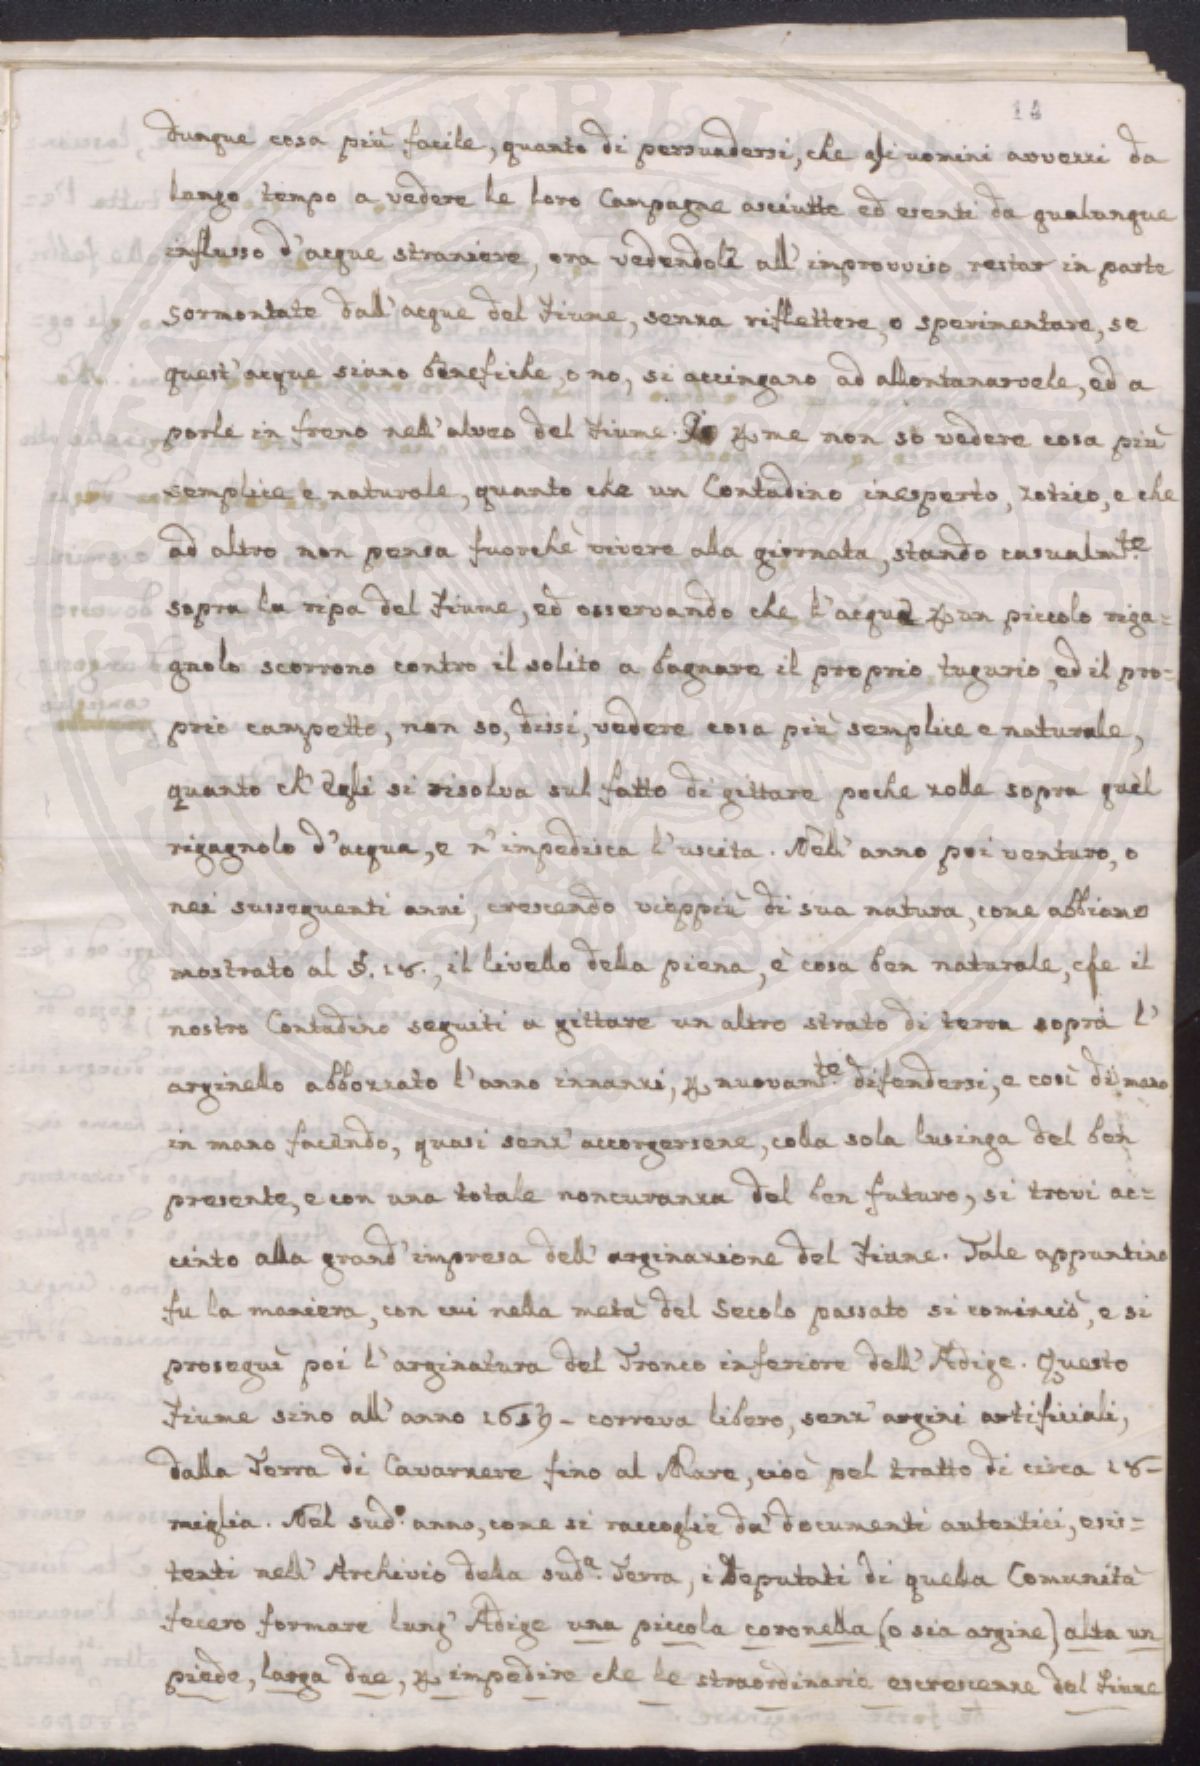 14
dunque cosa più facile, quanto di persuadersi, che gli uomini avvezzi da
lungo tempo a vedere le loro Campagne asciutte ed esenti da qualunque
influsso d'acque straniere, ora vedendole all'improvviso restar in parte
sormontate dall'acque del Fiume, senza riflettere, o sperimentare, se
quest'acque siano benefiche, o no, si accingano ad allontanarvele, ed a
porle in freno nell'alveo del Fiume. Io ꝑ me non so vedere cosa più
semplice e naturale, quanto che un Contadino inesperto, zotico, e che
ad altro non pensa fuorchè vivere alla giornata, stando casualmte.
sopra la ripa del Fiume, ed osservando che l'acque ꝑ un piccolo riga=
gnolo scorrono contro il solito a bagnare il proprio tugurio, ed il pro=
prio campetto, non so, dissi, vedere cosa più semplice e naturale,
quanto ch'Egli si risolva sul fatto di gittare poche zolle sopra quel
rigagnolo d'acqua, e n'impedisca l'uscita. Nell'anno poi venturo, o
nei susseguenti anni, crescendo vieppiù di sua natura, come abbiamo
mostrato al §. 18., il livello della piena, è cosa ben naturale, che il
nostro Contadino seguiti a gittare un altro strato di terra sopra l'
arginello abbozzato l'anno innanzi, ꝑ nuovamte. difendersi, e così di mano
in mano facendo, quasi senz'accorgersene, colla sola lusinga del ben
presente, e con una totale noncuranza del ben futuro, si trovi ac=
cinto alla grand'impresa dell'arginazione del Fiume. Tale appuntino
fu la maniera, con cui nella metà del Secolo passato si cominciò, e si
proseguì poi l'arginatura del Tronco inferiore dell'Adige. Questo
Fiume sino all'anno 1659 - correva libero, senz'argini artificiali,
dalla Terra di Cavarzere fino al Mare, cioè pel tratto di circa 18 -
miglia. Nel sudo. anno, come si raccoglie da' documenti autentici, esis=
tenti nell'Archivio della suda. Terra, i Deputati di quella Comunità
fecero formare lung'Adige una piccola coronella (o sia argine) alta un
piede, larga due, ꝑ impedire che le straordinarie escrescenze del Fiume